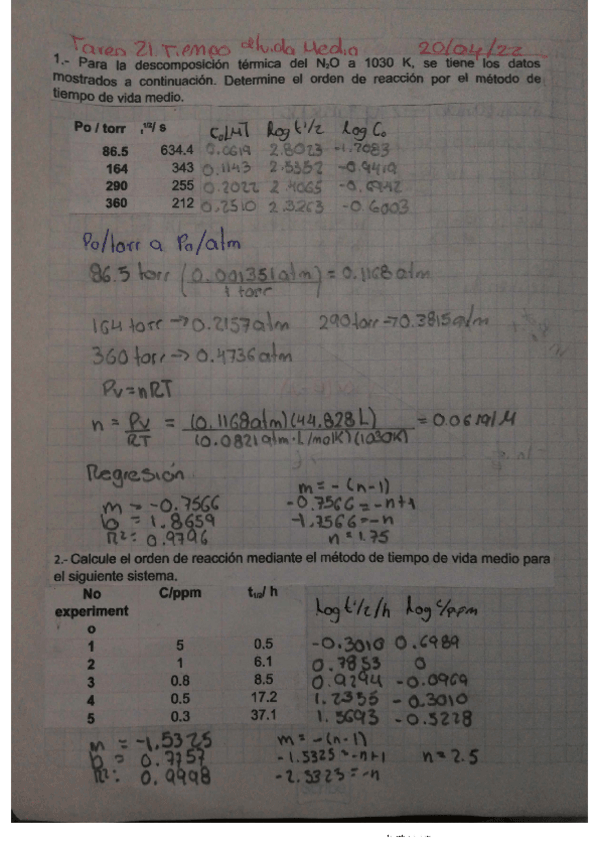 Tarea 21. Tiempo de vida Medio 20/04/22
1.- Para la descomposición térmica del N₂O a 1030 K, se tiene los datos
mostrados a continuación. Determine el orden de reacción por el método de
tiempo de vida medio.
Po / torr ,1/2/ s C₀/M Log t1/2 Log C₀
86.5 634.4 0.0619 2.8023 -1.2083
164 343 0.1143 2.5352 -0.9419
290 255 0.2022 2.4065 -0.6942
360 212 0.2510 2.3263 -0.6003
Po/torr a Po/atm
86.5 torr (0.001351atm / 1 torr) = 0.1168 atm
164 torr → 0.2157atm 290torr → 0.3815atm
360 torr → 0.4736atm
Pv=nRT
n = Pv/RT = (0.1168atm)(44.828L) / (0.0821atm·L/molK)(1030K) = 0.0619/M
Regresión
m = -0.7566 m = -(n-1)
b = 1.8659 -0.7566 = -n+1
R²: 0.9796 -1.7566 = -n
n = 1.75
2.- Calcule el orden de reacción mediante el método de tiempo de vida medio para
el siguiente sistema.
No C/ppm t1/2/ h
experiment Log t1/2/h Log C/ppm
o
1 5 0.5 -0.3010 0.6989
2 1 6.1 0.7853 0
3 0.8 8.5 0.9294 -0.0969
4 0.5 17.2 1.2355 -0.3010
5 0.3 37.1 1.5693 -0.5228
m = -1.5325 m = -(n-1)
b = 0.7757 -1.5325 = -n+1 n = 2.5
R²: 0.9998 -2.5323 = -n